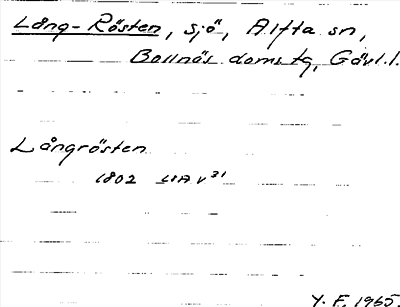 Lång-Rösten, sjö, Alfta sn,
Bollnäs doms tg, Gävl. l.
Långrösten
1802 LSA v³¹
Y. F. 1965.